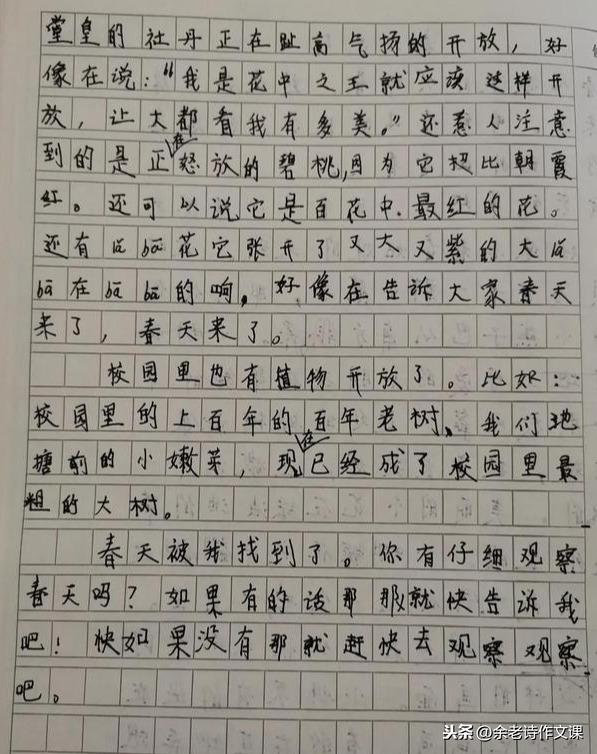 堂皇的牡丹正在趾高气扬的开放，好
像在说："我是花中之王就应该这样开
放，让大都看我有多美。"还惹人注意
到的是正在怒放的碧桃，因为它把比朝霞
红。还可以说它是百花中.最红的花。
还有lǎ bā花它张开了又大又紫的大lǎ
bā在bā bā的响，好像在告诉大家春天
来了，春天来了。
校园里也有植物开放了。比如：
校园里的上百年的百年老树、我们池
塘前的小嫩芽，现在已经成了校园里最
粗的大树。
春天被我找到了。你有仔细观察
春天吗？如果有的话那那就快告诉我
吧！快如果没有那就赶快去观察观察
吧。
头条@余老诗作文课